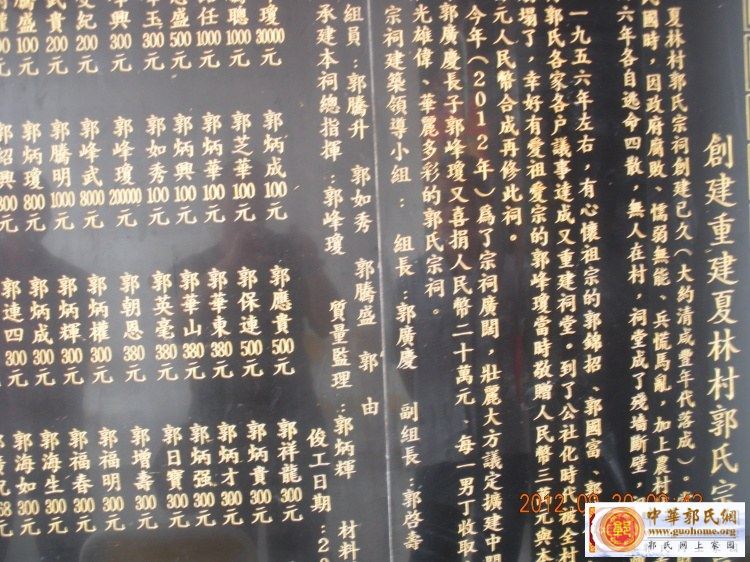 創建重建夏林村郭氏宗
夏林村郭氏宗祠創建已久(大約清咸豐年代落成)
民國時,因政府腐敗、懦弱無能、兵慌馬亂,加上農村
六年各自逃命四散,無人在村,祠堂成了殘墻斷壁,
一九五六年左右,有心懷祖宗的郭錦招、郭國富、郭
郭氏各家各户議事達成又重建祠堂。到了公社化時代被全村
塌了,幸好有愛祖愛宗的郭峰瓊當時敬贈人民幣三萬元與本
元人民幣合成再修此祠。
今年(2012年)爲了宗祠廣闊,壯麗大方議定擴建中間
郭廣慶長子郭峰瓊又喜捐人民幣二十萬元、每一男丁收取
光雄偉、華麗多彩的郭氏宗祠。
宗祠建築領導小組: 組長:郭廣慶 副組長:郭啓壽
組員:郭騰升 郭如秀 郭騰盛 郭由
承建本祠總指揮:郭峰瓊 質量監理:郭炳輝 材料
俊工日期:2
瓊30000元
聰1000元
任1000元
盛500元
玉500元
興300元
紀200元
貴200元
盛100元
郭炳成100元
郭芝華100元
郭炳華100元
郭炳興100元
郭如秀100元
郭峰瓊200000元
郭峰武8000元
郭騰明1000元
郭炳瓊800元
紹興800元
郭應貴500元
郭保連500元
郭華東380元
郭華山380元
郭英毫380元
郭朝恩380元
郭炳權300元
郭炳輝300元
郭炳成300元
郭連四300元
郭祥龍300元
郭炳貴300元
郭炳才300元
郭炳强300元
郭日寶300元
郭增壽300元
郭福明300元
郭福春300元
郭海生300元
郭海如300元
中華郭氏網
www.guohome.org
郭氏网上家园